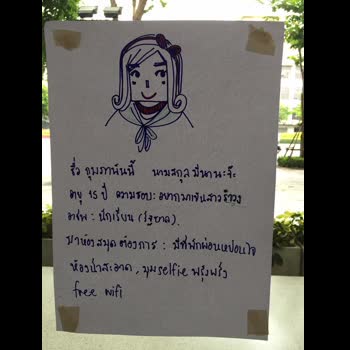 ชื่อ กุมภาพันนี้ นามสกุล มีนานะจ๊ะ
อายุ 15 ปี ความชอบ: อยากมาเป็นสาวรำวง
อาชีพ : นักเรียน (รัฐบาล).
มาห้องสมุด ต้องการ : มีที่พักผ่อนหย่อนใจ
ห้องน้ำสะอาด, มุม selfie ฟรุ้งฟริ้ง
free wifi